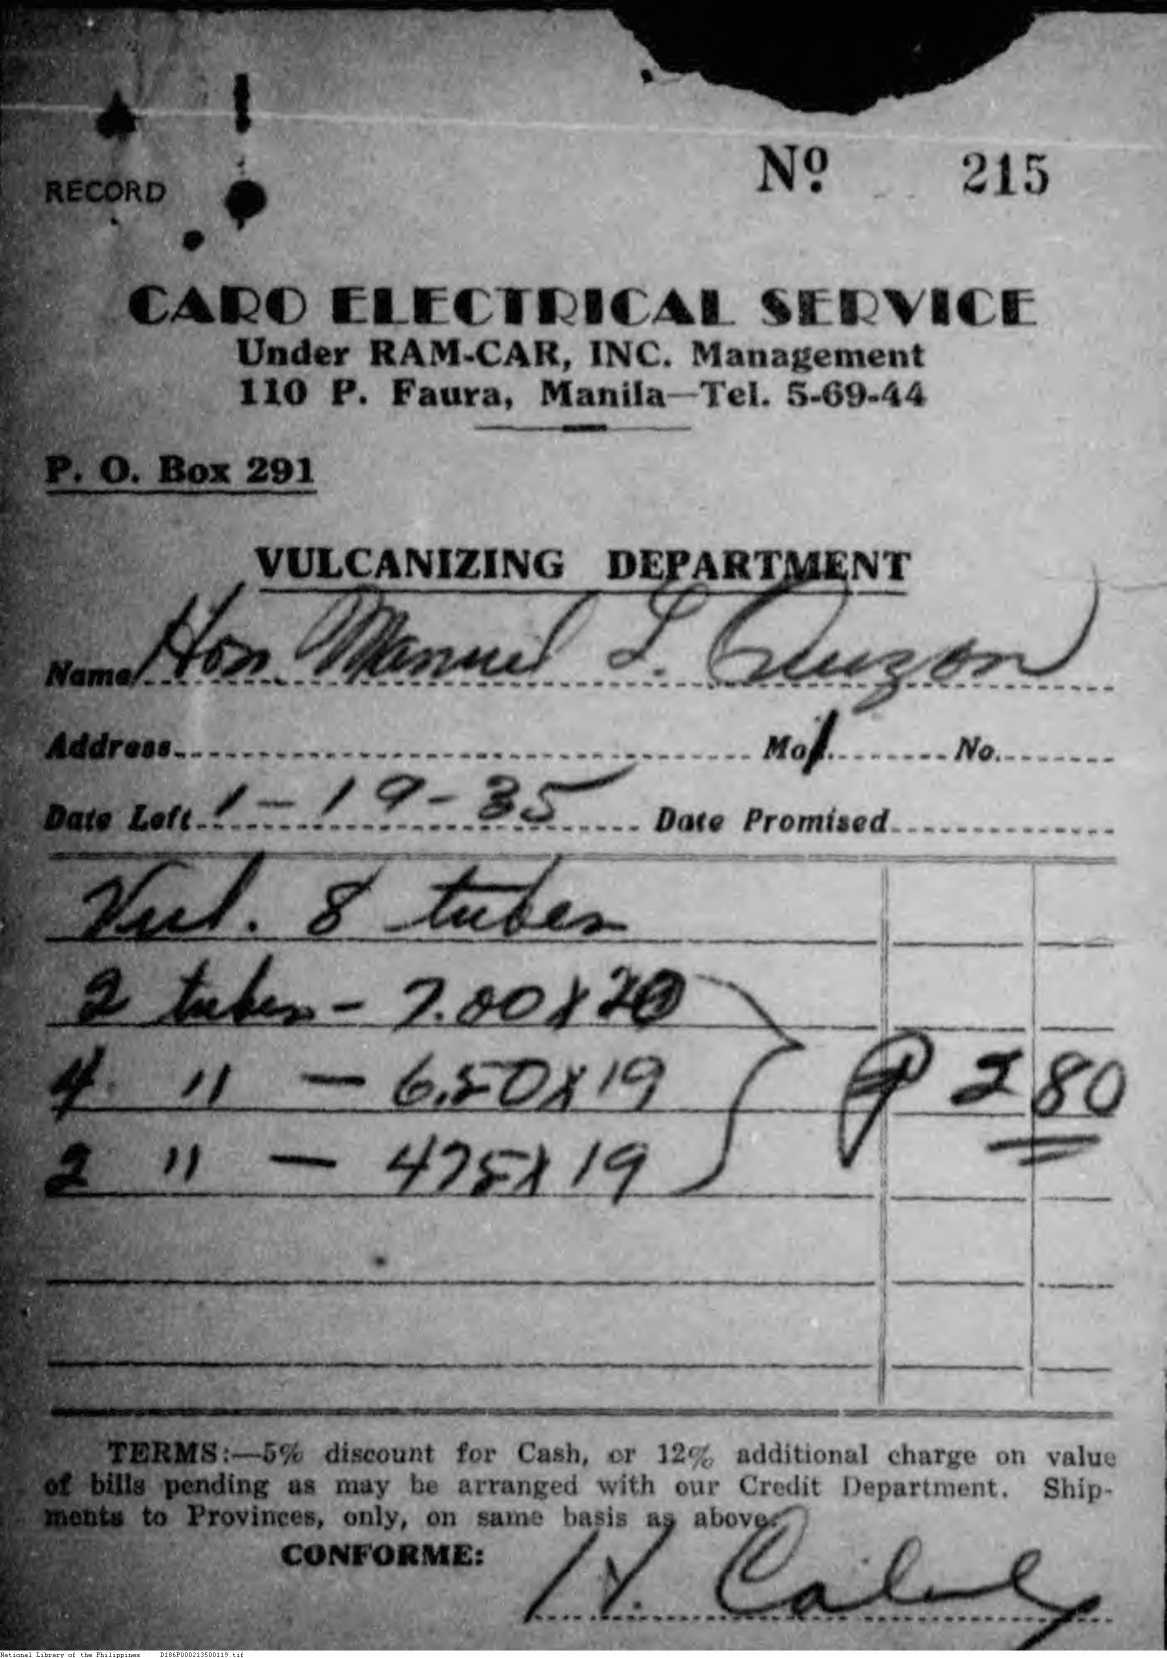 Nº 215
RECORD
CARO ELECTRICAL SERVICE
Under RAM-CAR, INC. Management
110 P. Faura, Manila—Tel. 5-69-44
P. O. Box 291
VULCANIZING DEPARTMENT
Name Hon. Manuel L. Quezon
Address Mo. No.
Date Left 1-19-35 Date Promised
Vul. 8 tubes
2 tubes - 7.00 x 20
4 " - 6.50 x 19 ₱ 2 80
2 " - 475 x 19
TERMS:—5% discount for Cash, or 12% additional charge on value
of bills pending as may be arranged with our Credit Department. Ship-
ments to Provinces, only, on same basis as above.
CONFORME:
National Library of the Philippines D186P000213500119.tif